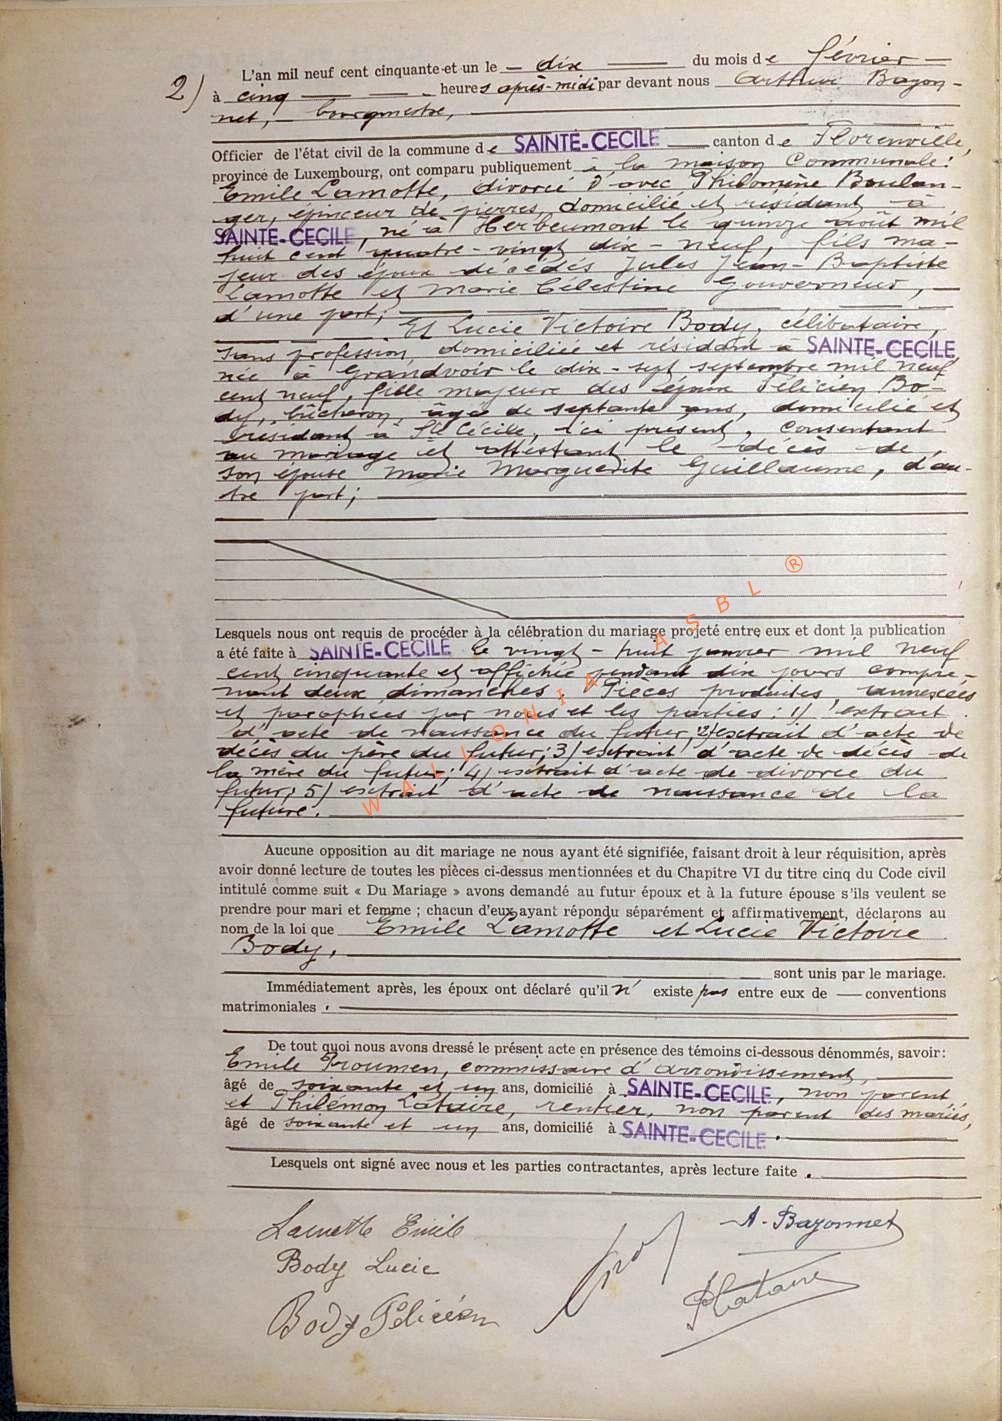 2)
L'an mil neuf cent cinquante et un le — dix — du mois de février —
à cinq — heures après-midi par devant nous Arthur Bayon-
net, bourgmestre,
Officier de l'état civil de la commune de SAINTE-CECILE canton de Florenville,
province de Luxembourg, ont comparu publiquement à la maison Communale :
Emile Lamotte, divorcé d'avec Philomène Boulan-
ger, épinceur de pierres, domicilié et résidant à
SAINTE-CECILE, né à Herbeumont le quinze août mil
huit cent quatre-vingt dix-neuf, fils ma-
jeur des époux décédés Jules Jean-Baptiste
Lamotte et Marie Célestine Gouverneur, —
d'une part;
Et Lucie Victoire Body, célibataire,
sans profession, domiciliée et résidant à SAINTE-CECILE
née à Grandvoir le dix-sept septembre mil neuf
cent neuf, fille majeure des époux Félicien Bo-
dy, bûcheron, âgé de septante ans, domicilié et
résidant à Ste Cécile, ici présent, consentant
au mariage et attestant le décès de
son épouse Marie Marguerite Guillaume, d'au-
tre part;
Lesquels nous ont requis de procéder à la célébration du mariage projeté entre eux et dont la publication
a été faite à SAINTE-CECILE le vingt-huit janvier mil neuf
cent cinquante et affichée pendant dix jours compre-
nant deux dimanches. Pièces produites, annexées
et paraphées par nous et les parties : 1) l'extrait
d'acte de naissance du futur; 2) extrait d'acte de
décès du père du futur; 3) extrait d'acte de décès de
la mère du futur; 4) extrait d'acte de divorce du
futur; 5) extrait d'acte de naissance de la
future.
Aucune opposition au dit mariage ne nous ayant été signifiée, faisant droit à leur réquisition, après
avoir donné lecture de toutes les pièces ci-dessus mentionnées et du Chapitre VI du titre cinq du Code civil
intitulé comme suit « Du Mariage » avons demandé au futur époux et à la future épouse s'ils veulent se
prendre pour mari et femme ; chacun d'eux ayant répondu séparément et affirmativement, déclarons au
nom de la loi que Emile Lamotte et Lucie Victoire
Body,
sont unis par le mariage.
Immédiatement après, les époux ont déclaré qu'il n'existe pas entre eux de — conventions
matrimoniales.
De tout quoi nous avons dressé le présent acte en présence des témoins ci-dessous dénommés, savoir :
Emile commissaire d'arrondissement,
âgé de soixante et un ans, domicilié à SAINTE-CECILE, non parent
et Philémon Lataire, rentier, non parent des mariés,
âgé de soixante et un ans, domicilié à SAINTE-CECILE.
Lesquels ont signé avec nous et les parties contractantes, après lecture faite.
Lamotte Emile
A. Bayonnet
Body Lucie
PLataire
Body Félicien
WALLONIA ASBL ®